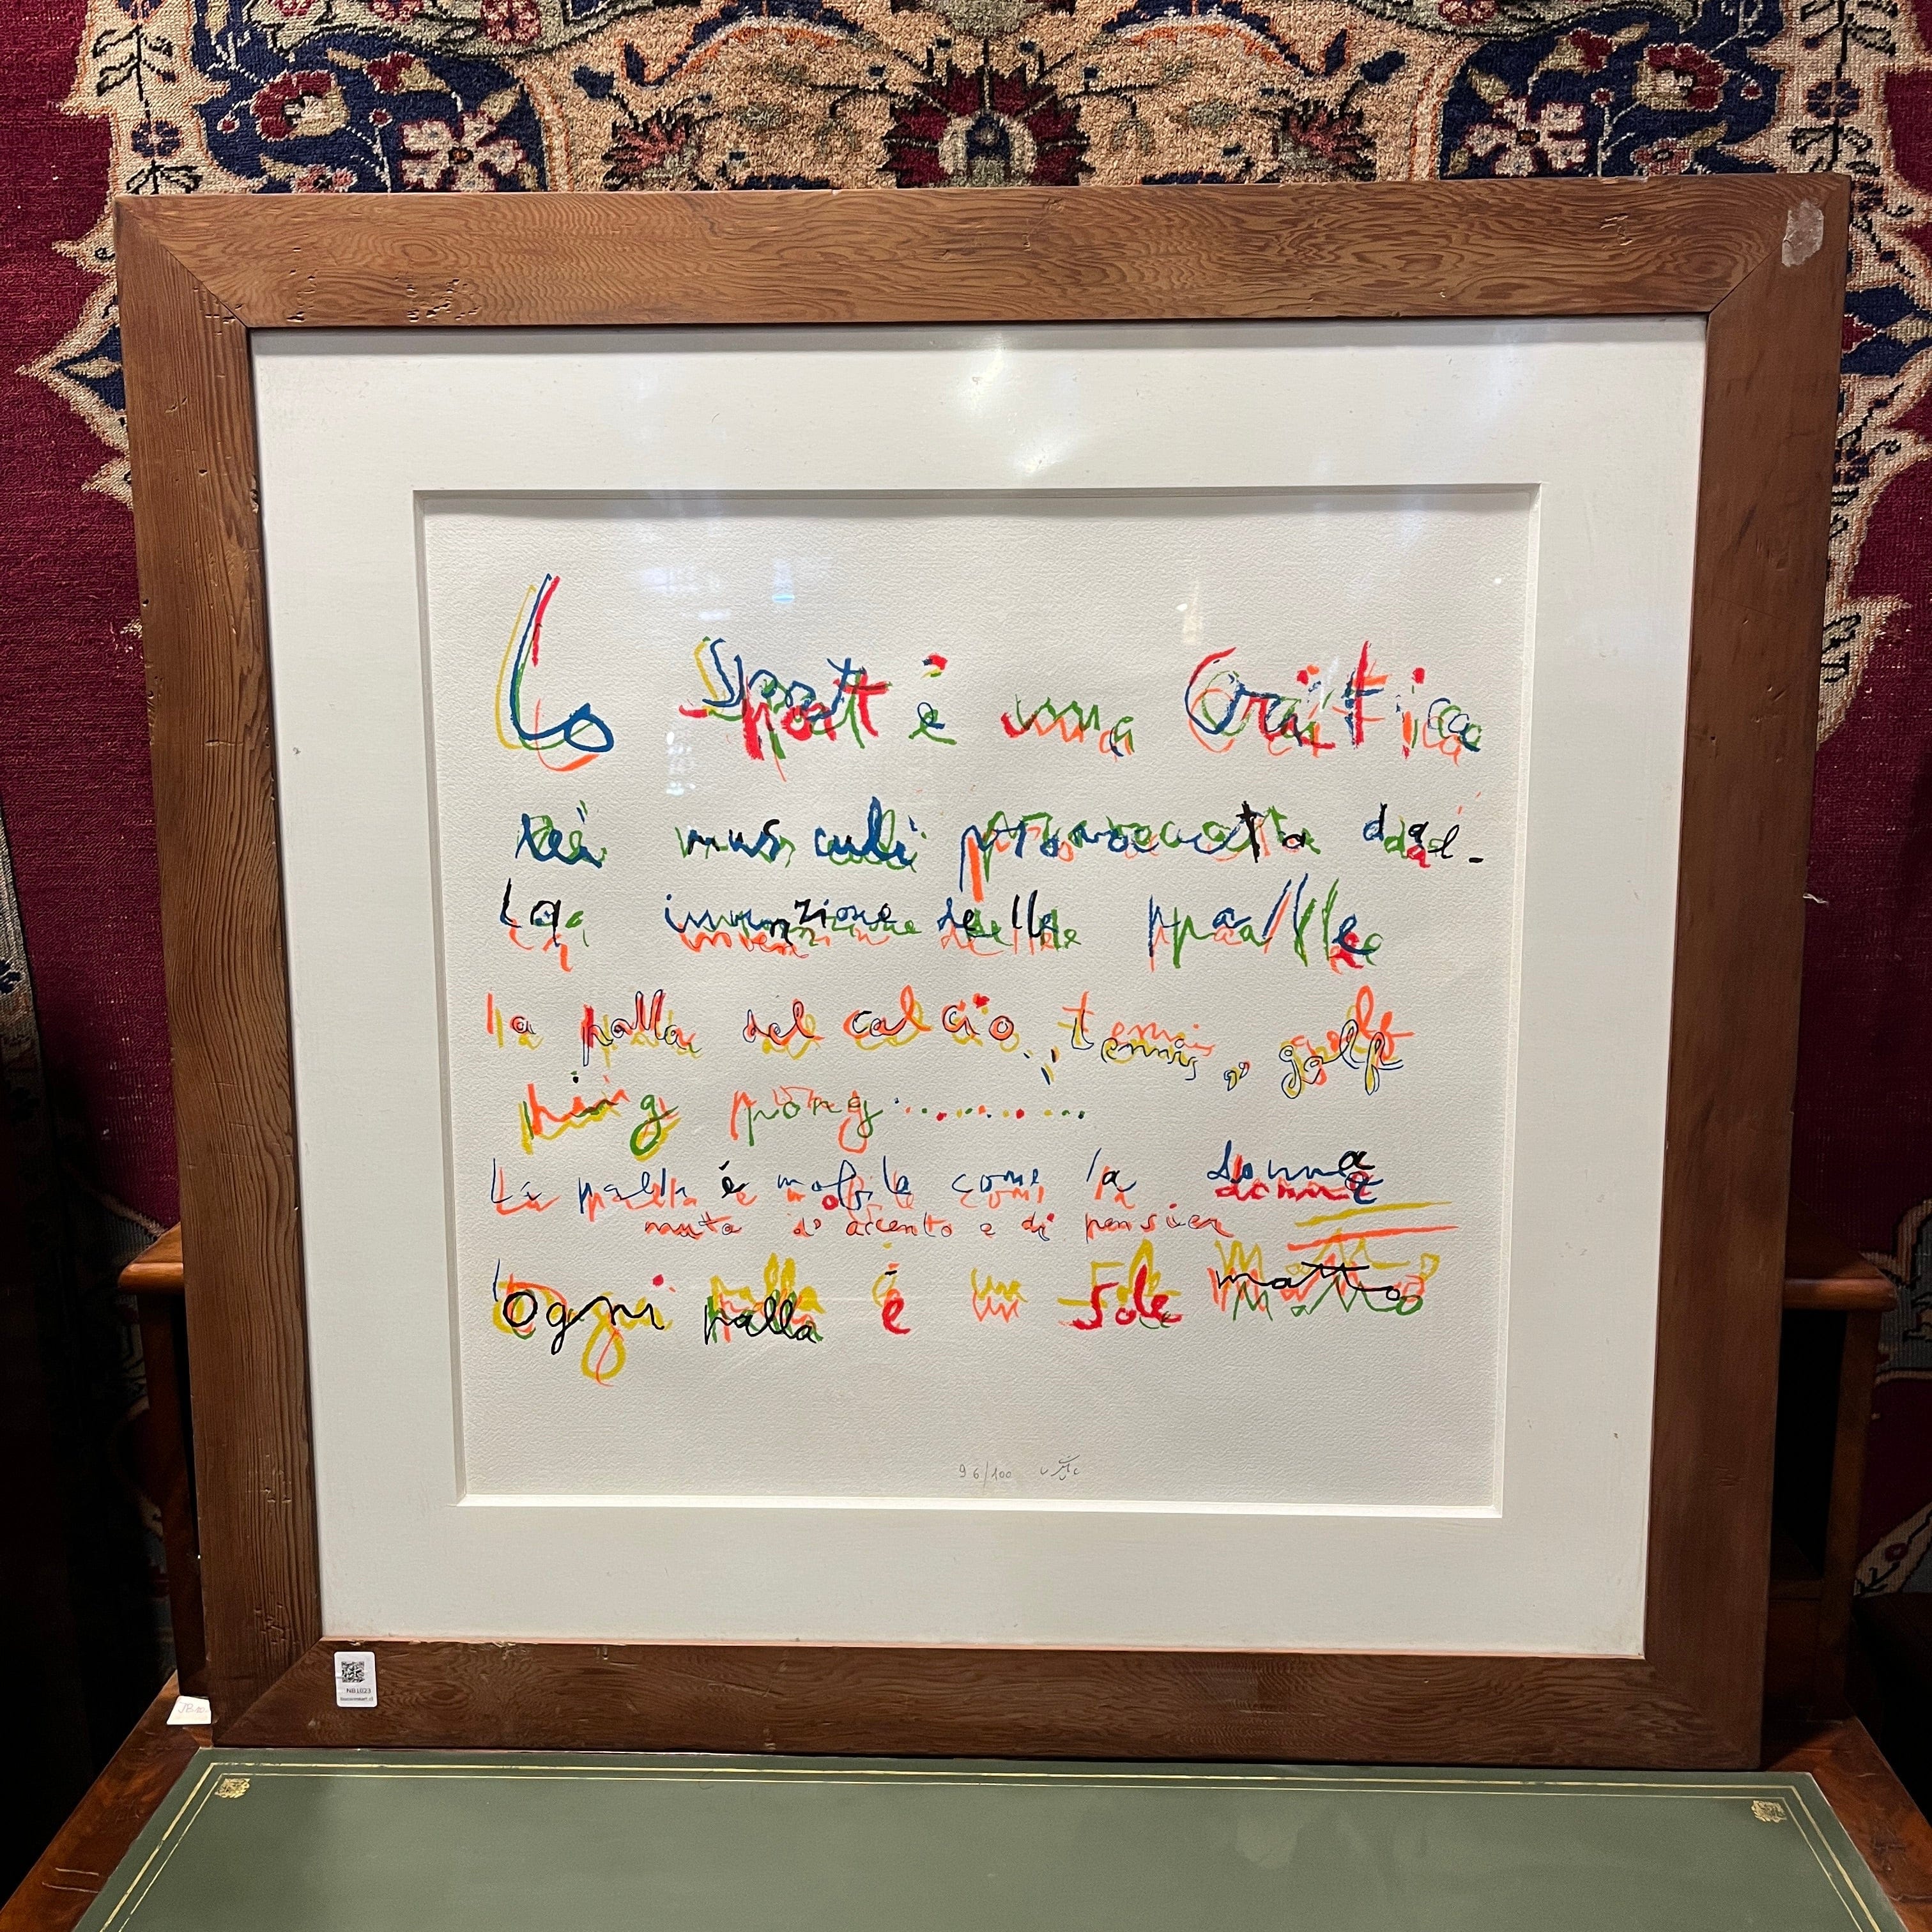 Lo Sport è una Critica
dei muscoli provocata dal-
la invenzione delle palle
la palla del calcio, tennis, golf
ping pong ..........
La palla è mobile come la donna
muta d'accento e di pensier
Ogni palla è un Sole matto
96/100
NB1023